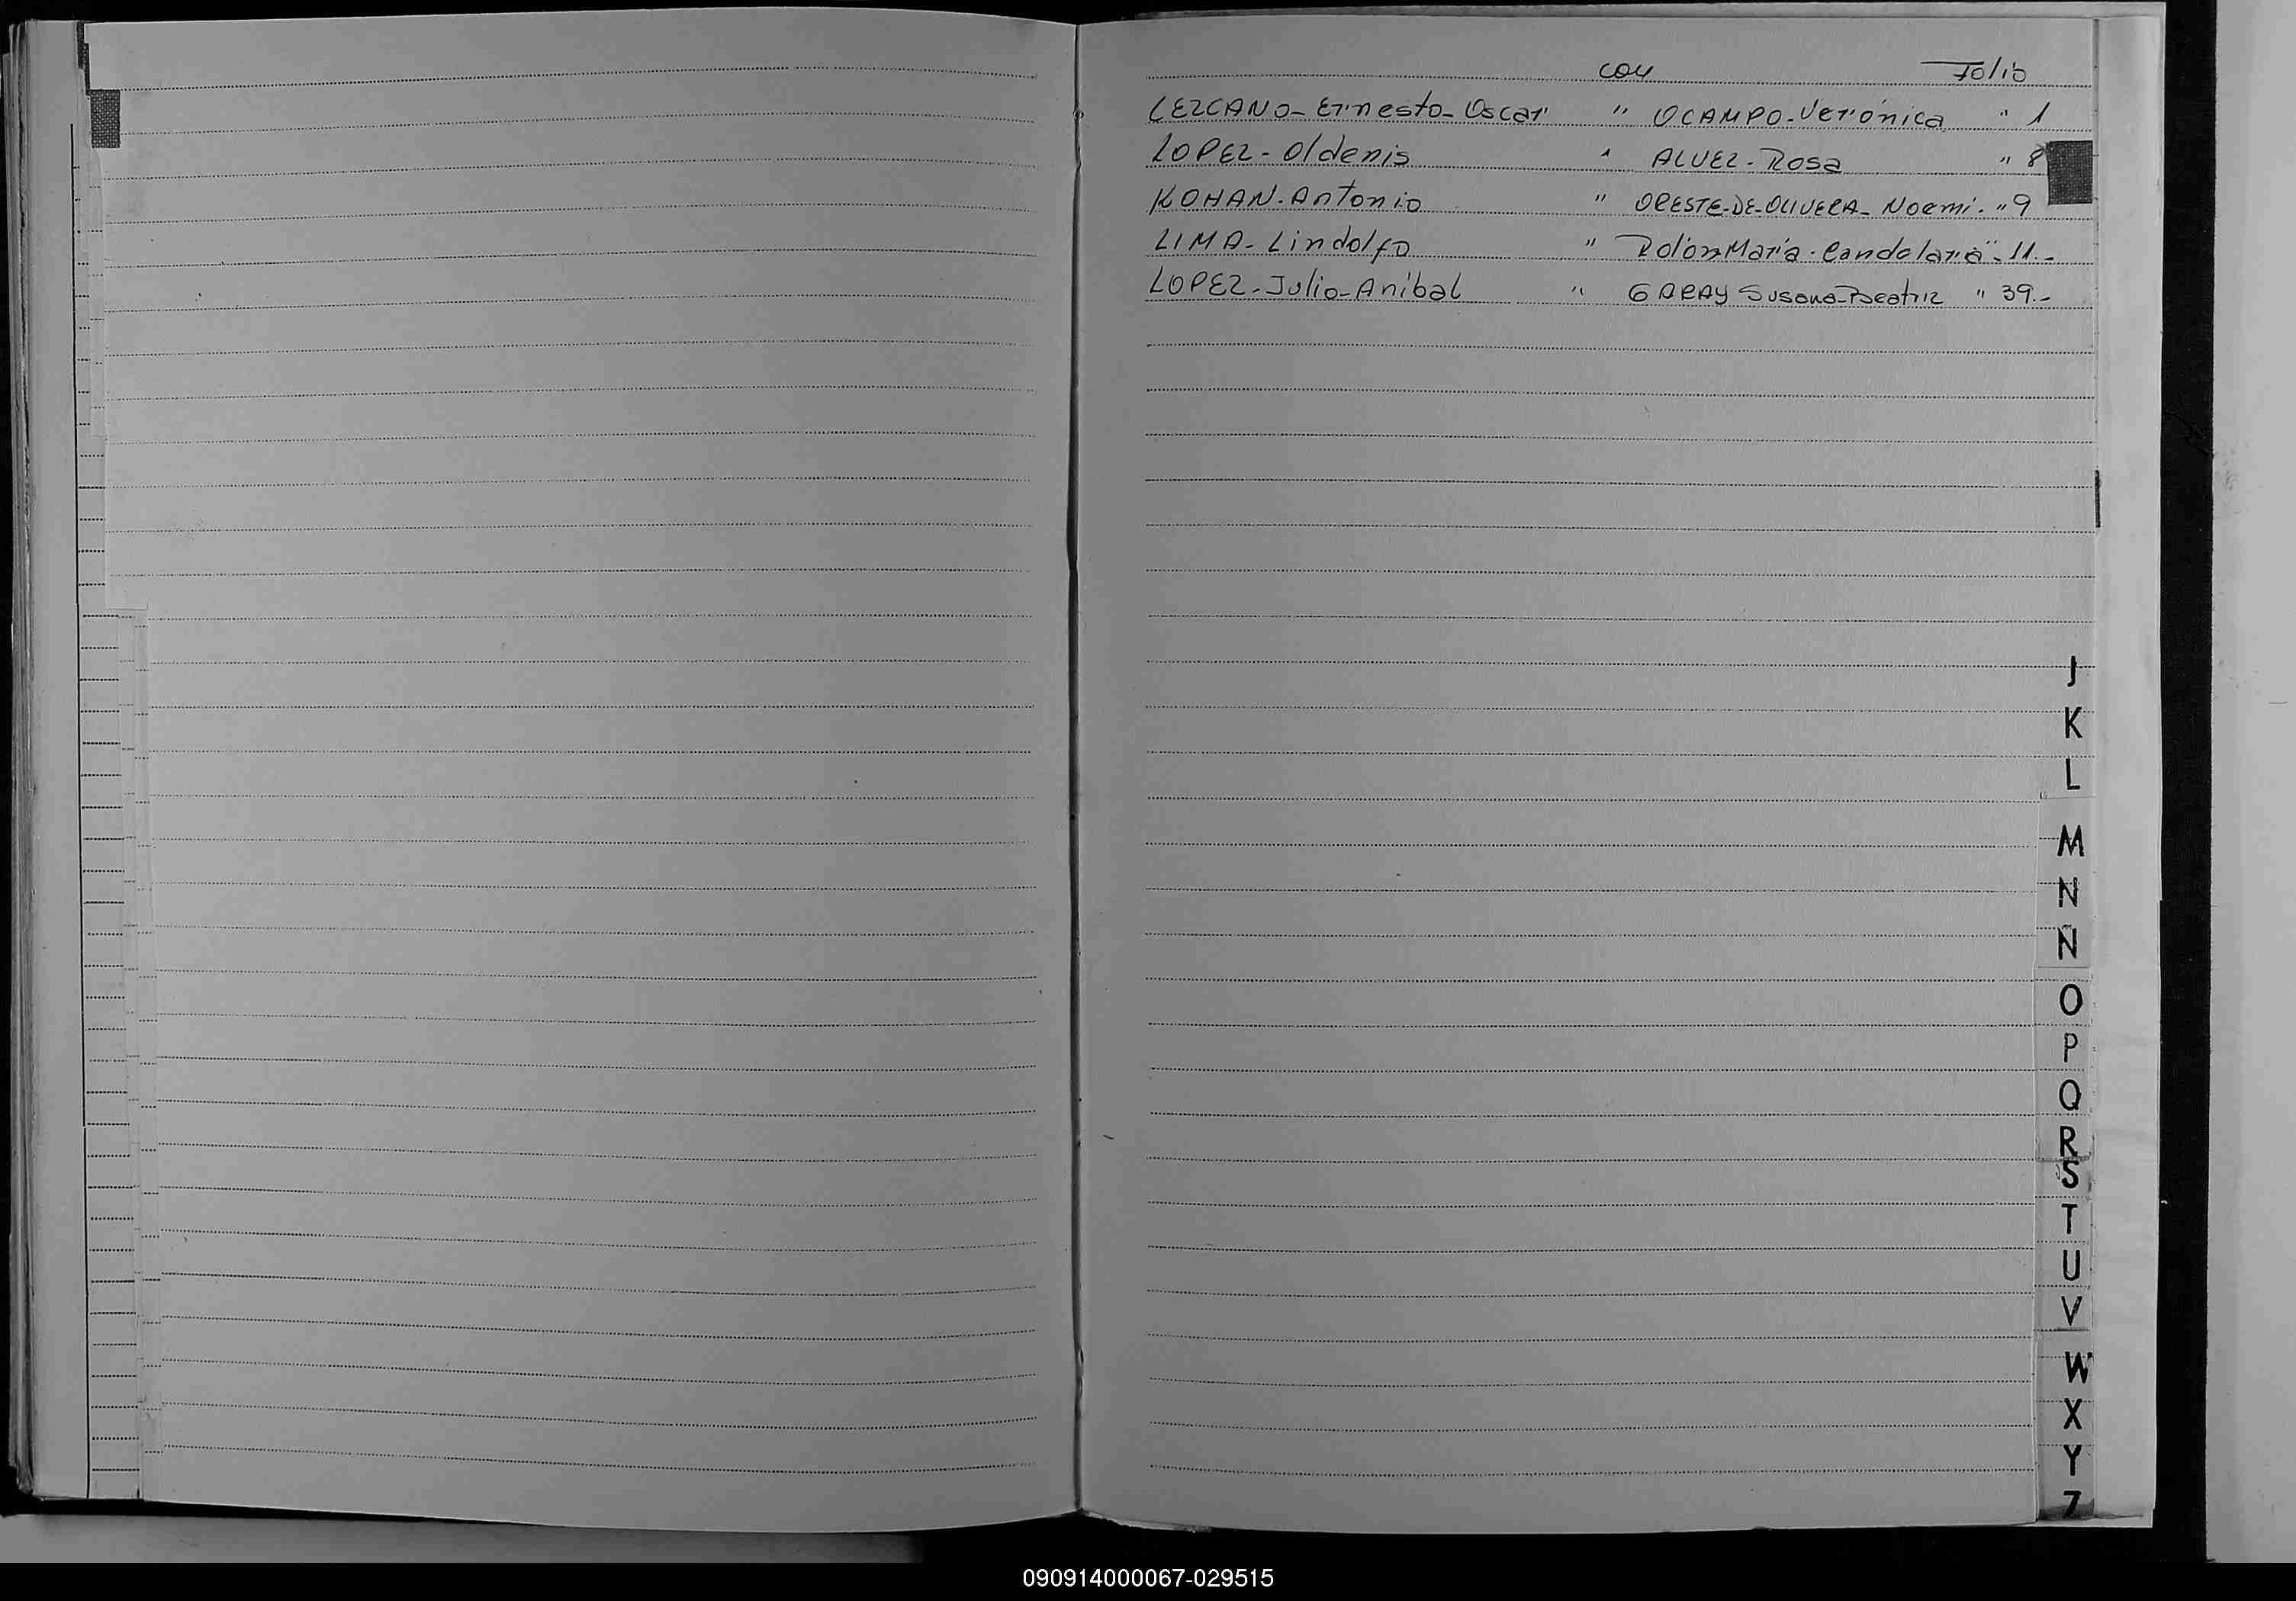 con Folio
LEZCANO- Ernesto- Oscar " OCAMPO- Verónica " 1
LOPEZ- Oldenis " ALVEZ- Rosa " 8
KOHAN- Antonio " ORESTE-DE-OLIVERA- Noemi- " 9
LIMA- Lindolfo " Rolón María- Candelaria "- 11.-
LOPEZ- Julio-Anibal " GARAY Susana-Beatriz " 39.-
J
K
L
M
N
Ñ
O
P
Q
R
S
T
U
V
W
X
Y
Z
090914000067-029515